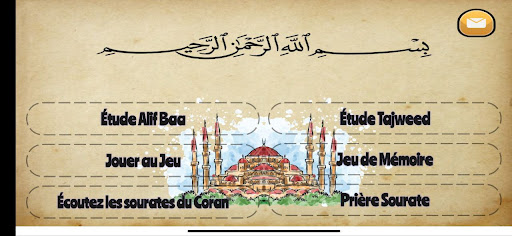 بِسْمِ ٱللَّهِ ٱلرَّحْمَٰنِ ٱلرَّحِيمِ
Étude Alif Baa
Étude Tajweed
Jouer au Jeu
Jeu de Mémoire
Écoutez les sourates du Coran
Prière Sourate